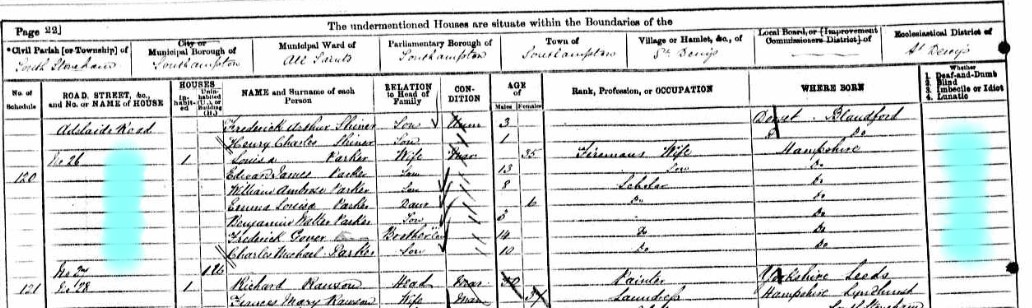 Page 22] The undermentioned Houses are situate within the Boundaries of the
*Civil Parish [or Township] of City or Municipal Borough of Municipal Ward of Parliamentary Borough of Town of Village or Hamlet, &c., of Local Board, or [Improvement Commissioners District] of Ecclesiastical District of
South Stoneham Southampton All Saints Southampton Southampton St Denys St Denys
No. of Schedule ROAD, STREET, &c., and No. or NAME of HOUSE HOUSES Inhabited Uninhabited (U.), or Building (B.) NAME and Surname of each Person RELATION to Head of Family CONDITION AGE of Males Females Rank, Profession, or OCCUPATION WHERE BORN Whether 1. Deaf-and-Dumb 2. Blind 3. Imbecile or Idiot 4. Lunatic
Adelaide Road Frederick Arthur Shiner Son Unm 3 Dorset Blandford
Henry Charles Shiner Son 1 Do Do
120 No 26 1 Louisa Parker Wife Mar 35 Firemans Wife Hampshire
Edward James Parker Son 13 Do
William Ambrose Parker Son 8 Scholar Do
Emma Louisa Parker Daur 6 Do Do
Benjamin Walter Parker Son 5 Do
Frederick Gover Brother 14 Do Do
Charles Michael Parker Son 10 Do Do
No 27 1 U
121 No 28 1 Richard Rawson Head Mar Painter Yorkshire Leeds
Frances Mary Rawson Wife Mar Laundress Hampshire Lyndhurst
South Stoneham